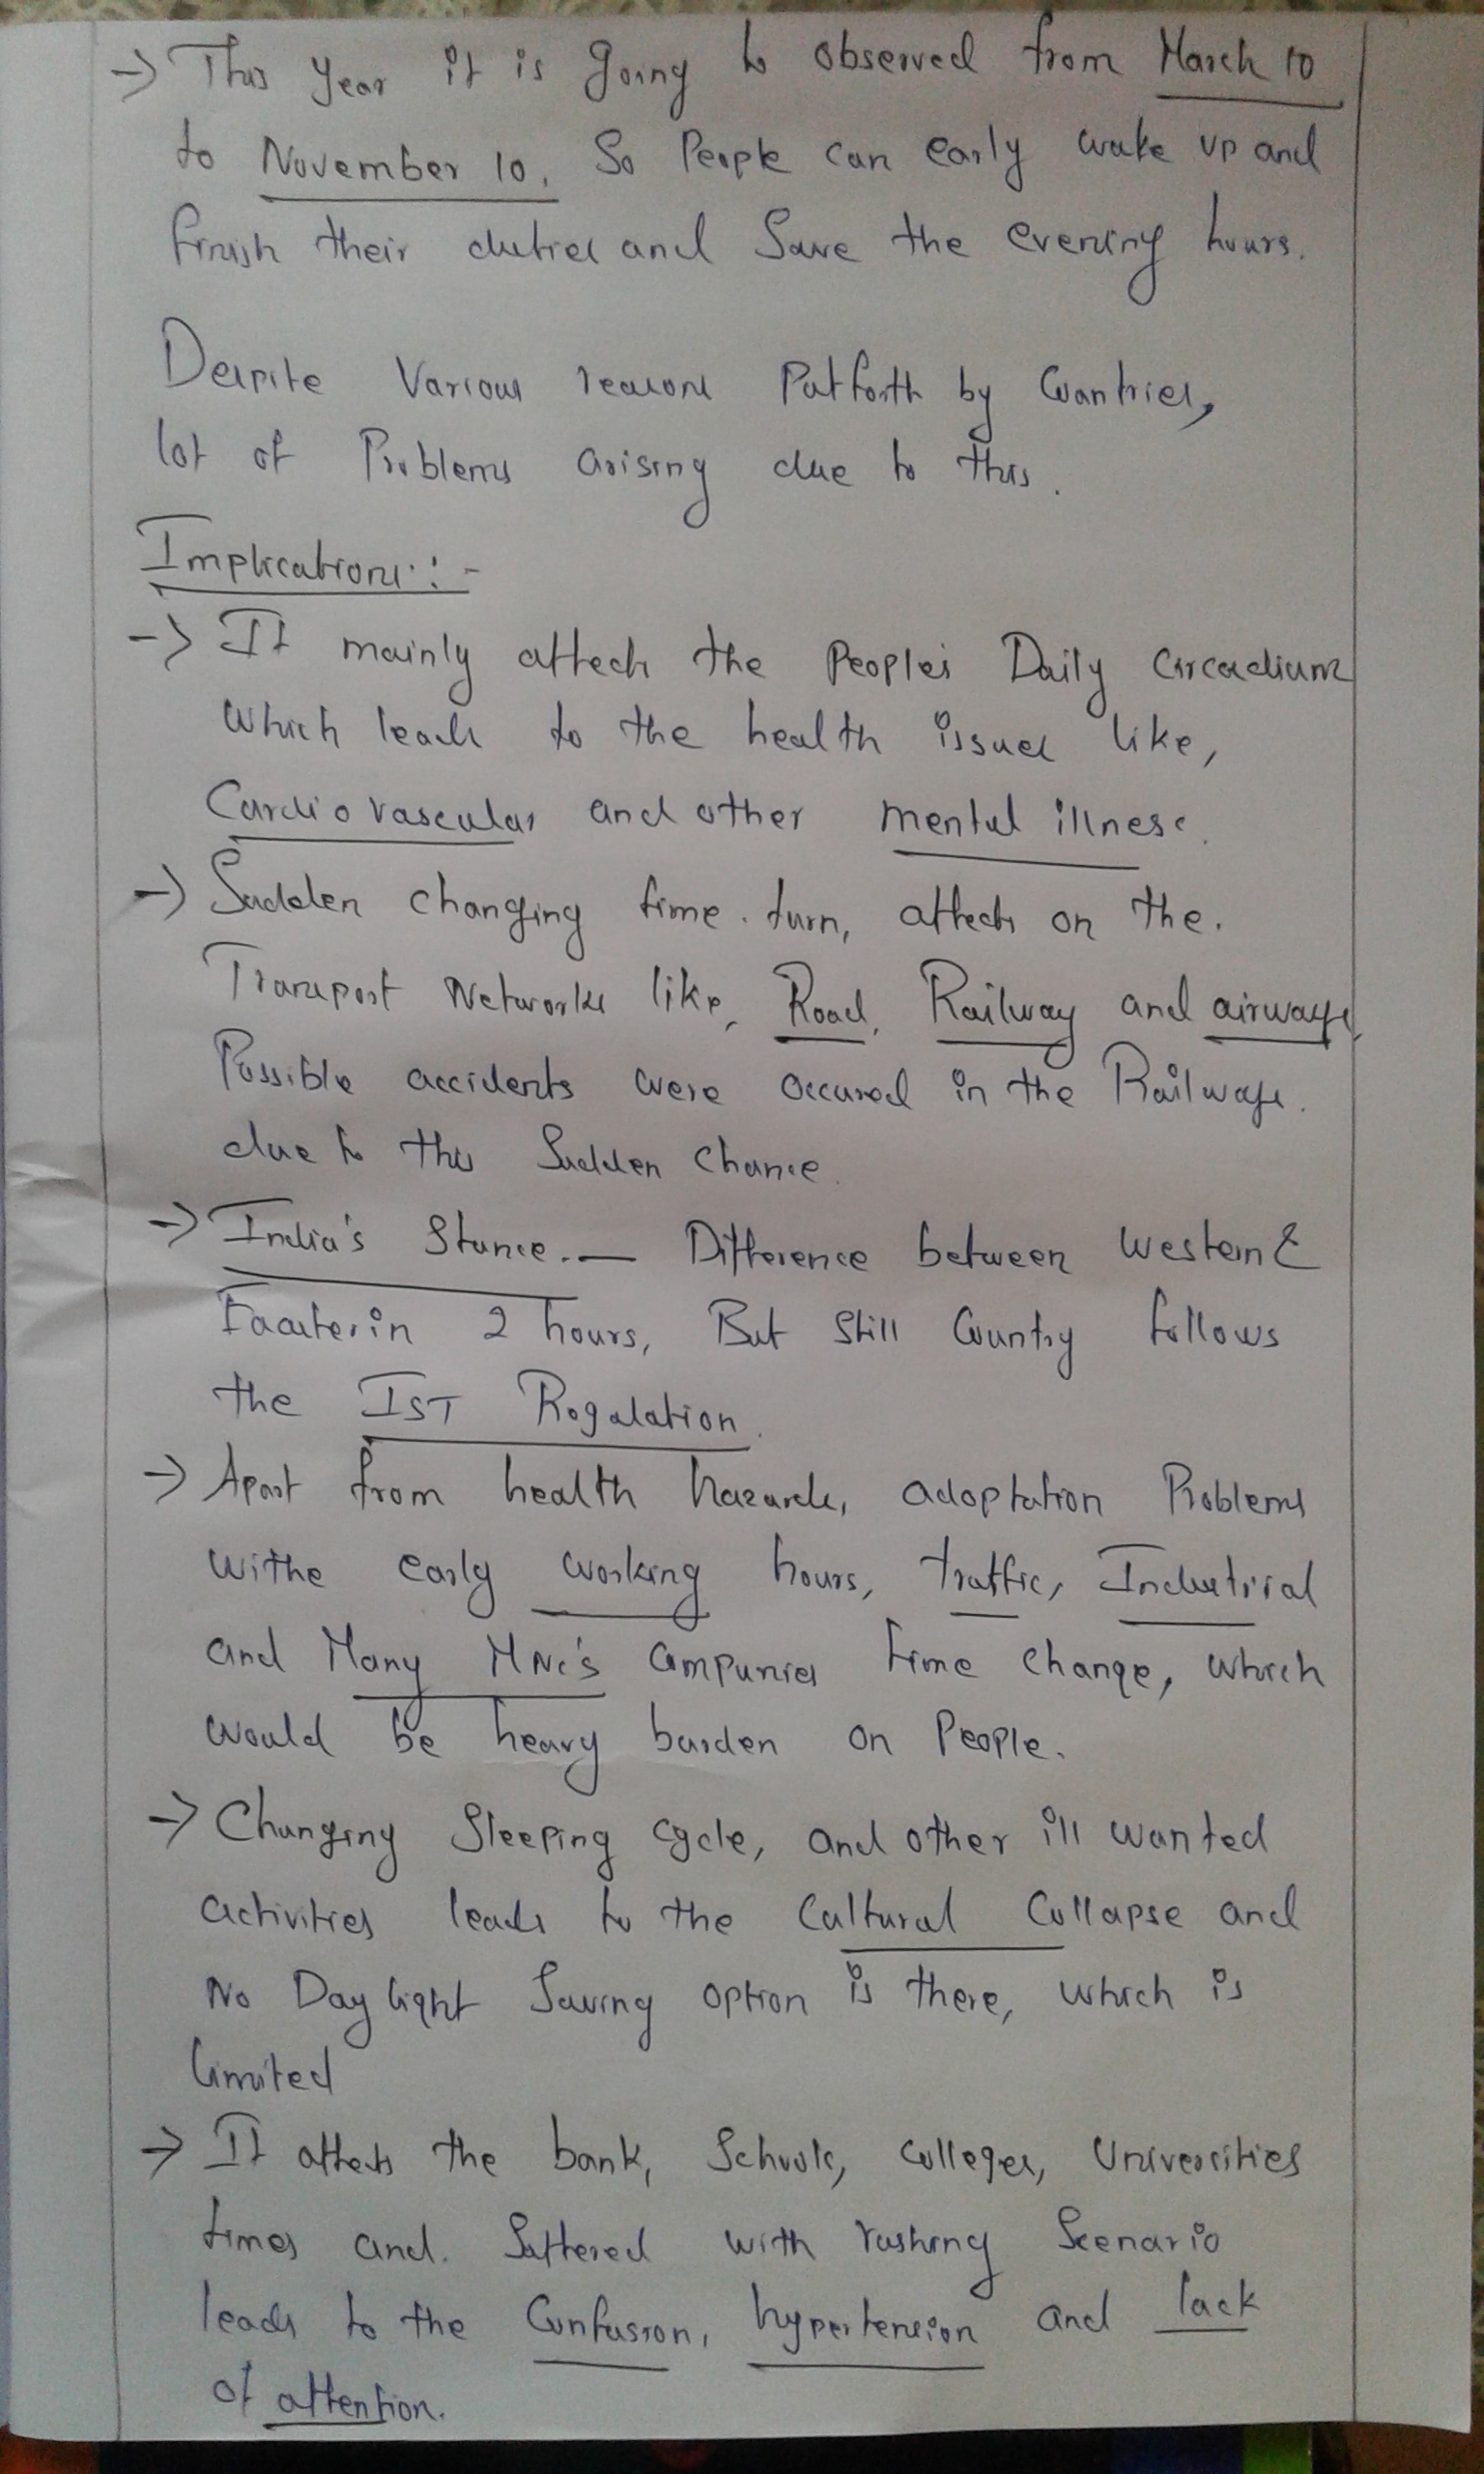 -> This Year it is going to observed from March 10
to November 10. So People can early wake up and
finish their duties and Save the evening hours.
Despite Various reasons Put forth by Countries,
lot of Problems arising due to this.
Implications: -
-> It mainly affects the People's Daily Circadium
Which leads to the health issues like,
Cardiovascular and other mental illness.
-> Sudden changing time turn, affects on the.
Transport Networks like, Road, Railway and airways,
Possible accidents were occured in the Railways.
due to this Sudden Chance.
-> India's Stance. — Difference between Western &
Easterin 2 hours, But Still Country follows
the IST Rogulation.
-> Apart from health hazards, adoptation Problems
withe early working hours, traffic, Industrial
and Many MNc's Companies time change, which
would be heavy burden on People.
-> Changing Sleeping cycle, and other ill wanted
activities leads to the Cultural Collapse and
No Day light Saving option is there, which is
limited
-> It affects the bank, Schools, Colleges, Universities
times and. Suffered with rushing Scenario
leads to the Confusion, hypertension and lack
of attention.